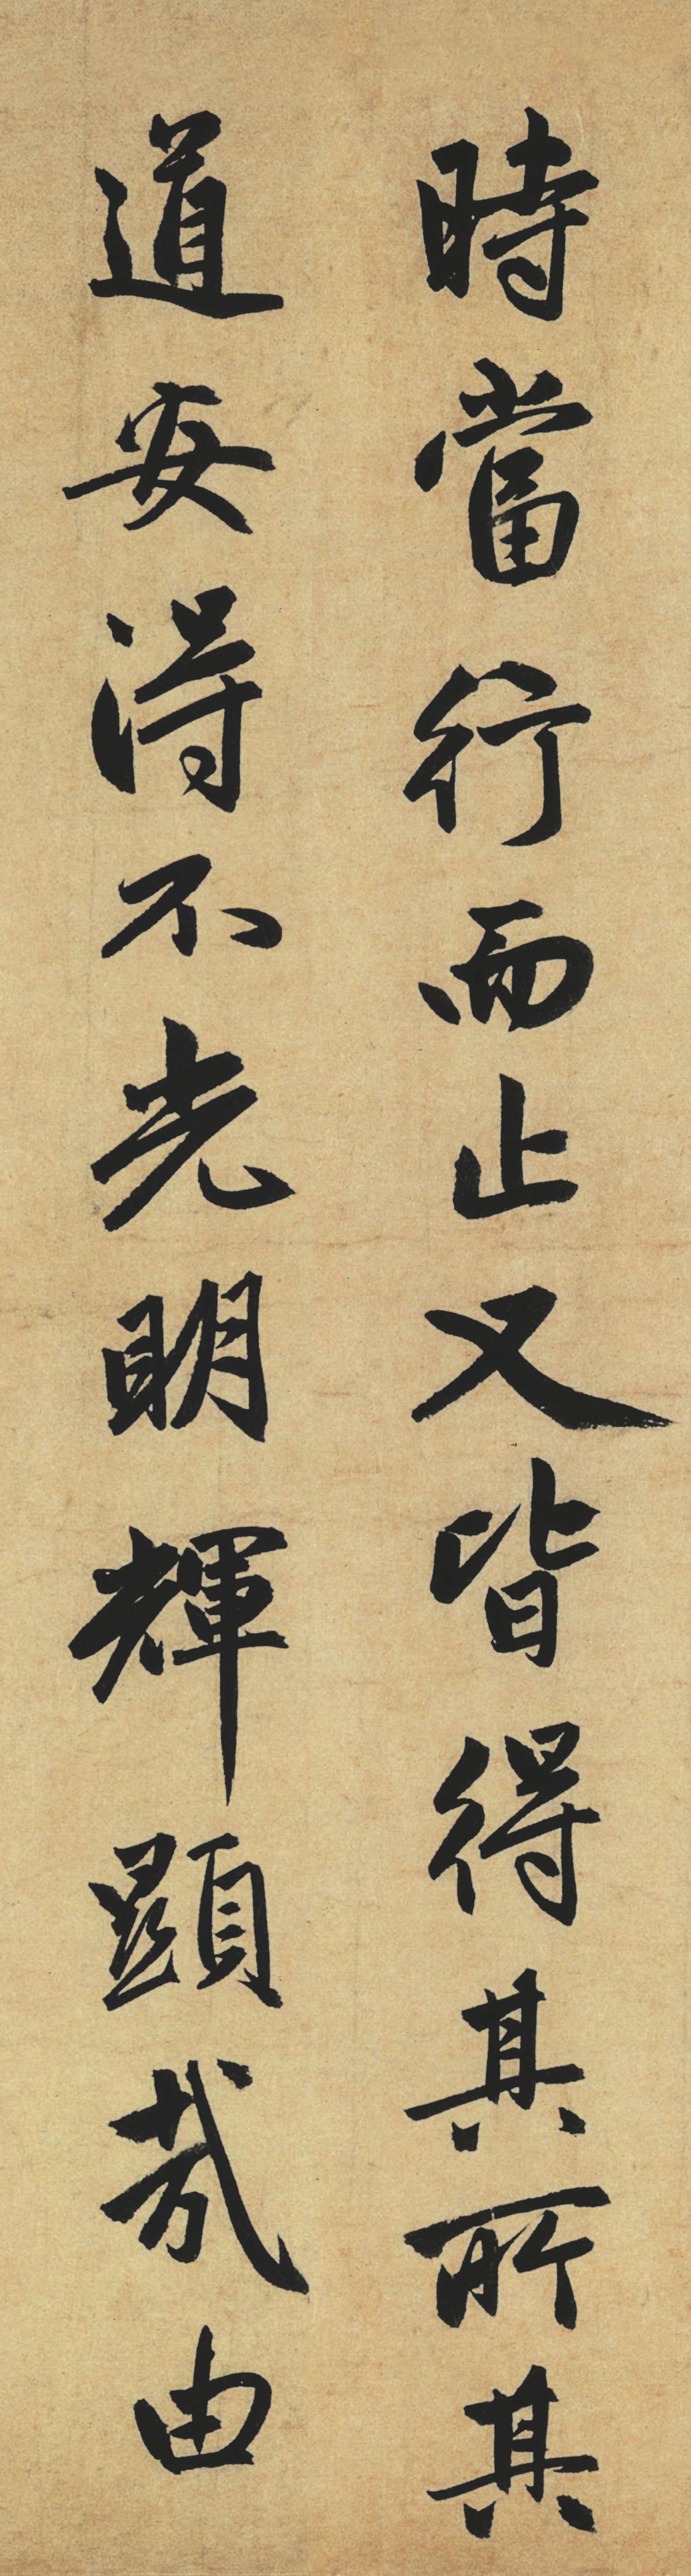 時當行而止又皆得其所其
道安得不光明輝顯哉由